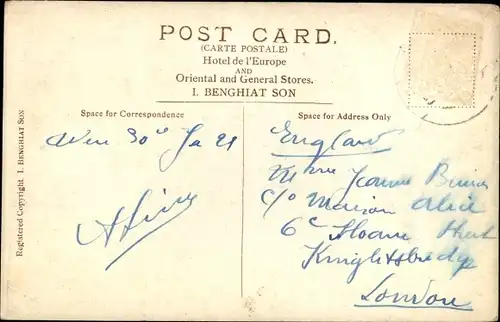 POST CARD.
(CARTE POSTALE)
Hotel de l'Europe
AND
Oriental and General Stores.
I. BENGHIAT SON
Space for Correspondence
Space for Address Only
Registered Copyright I. BENGHIAT SON
30
England
Mme Jeanne
c/o Maison Alice
6c Sloane Street
Knightsbridge
London